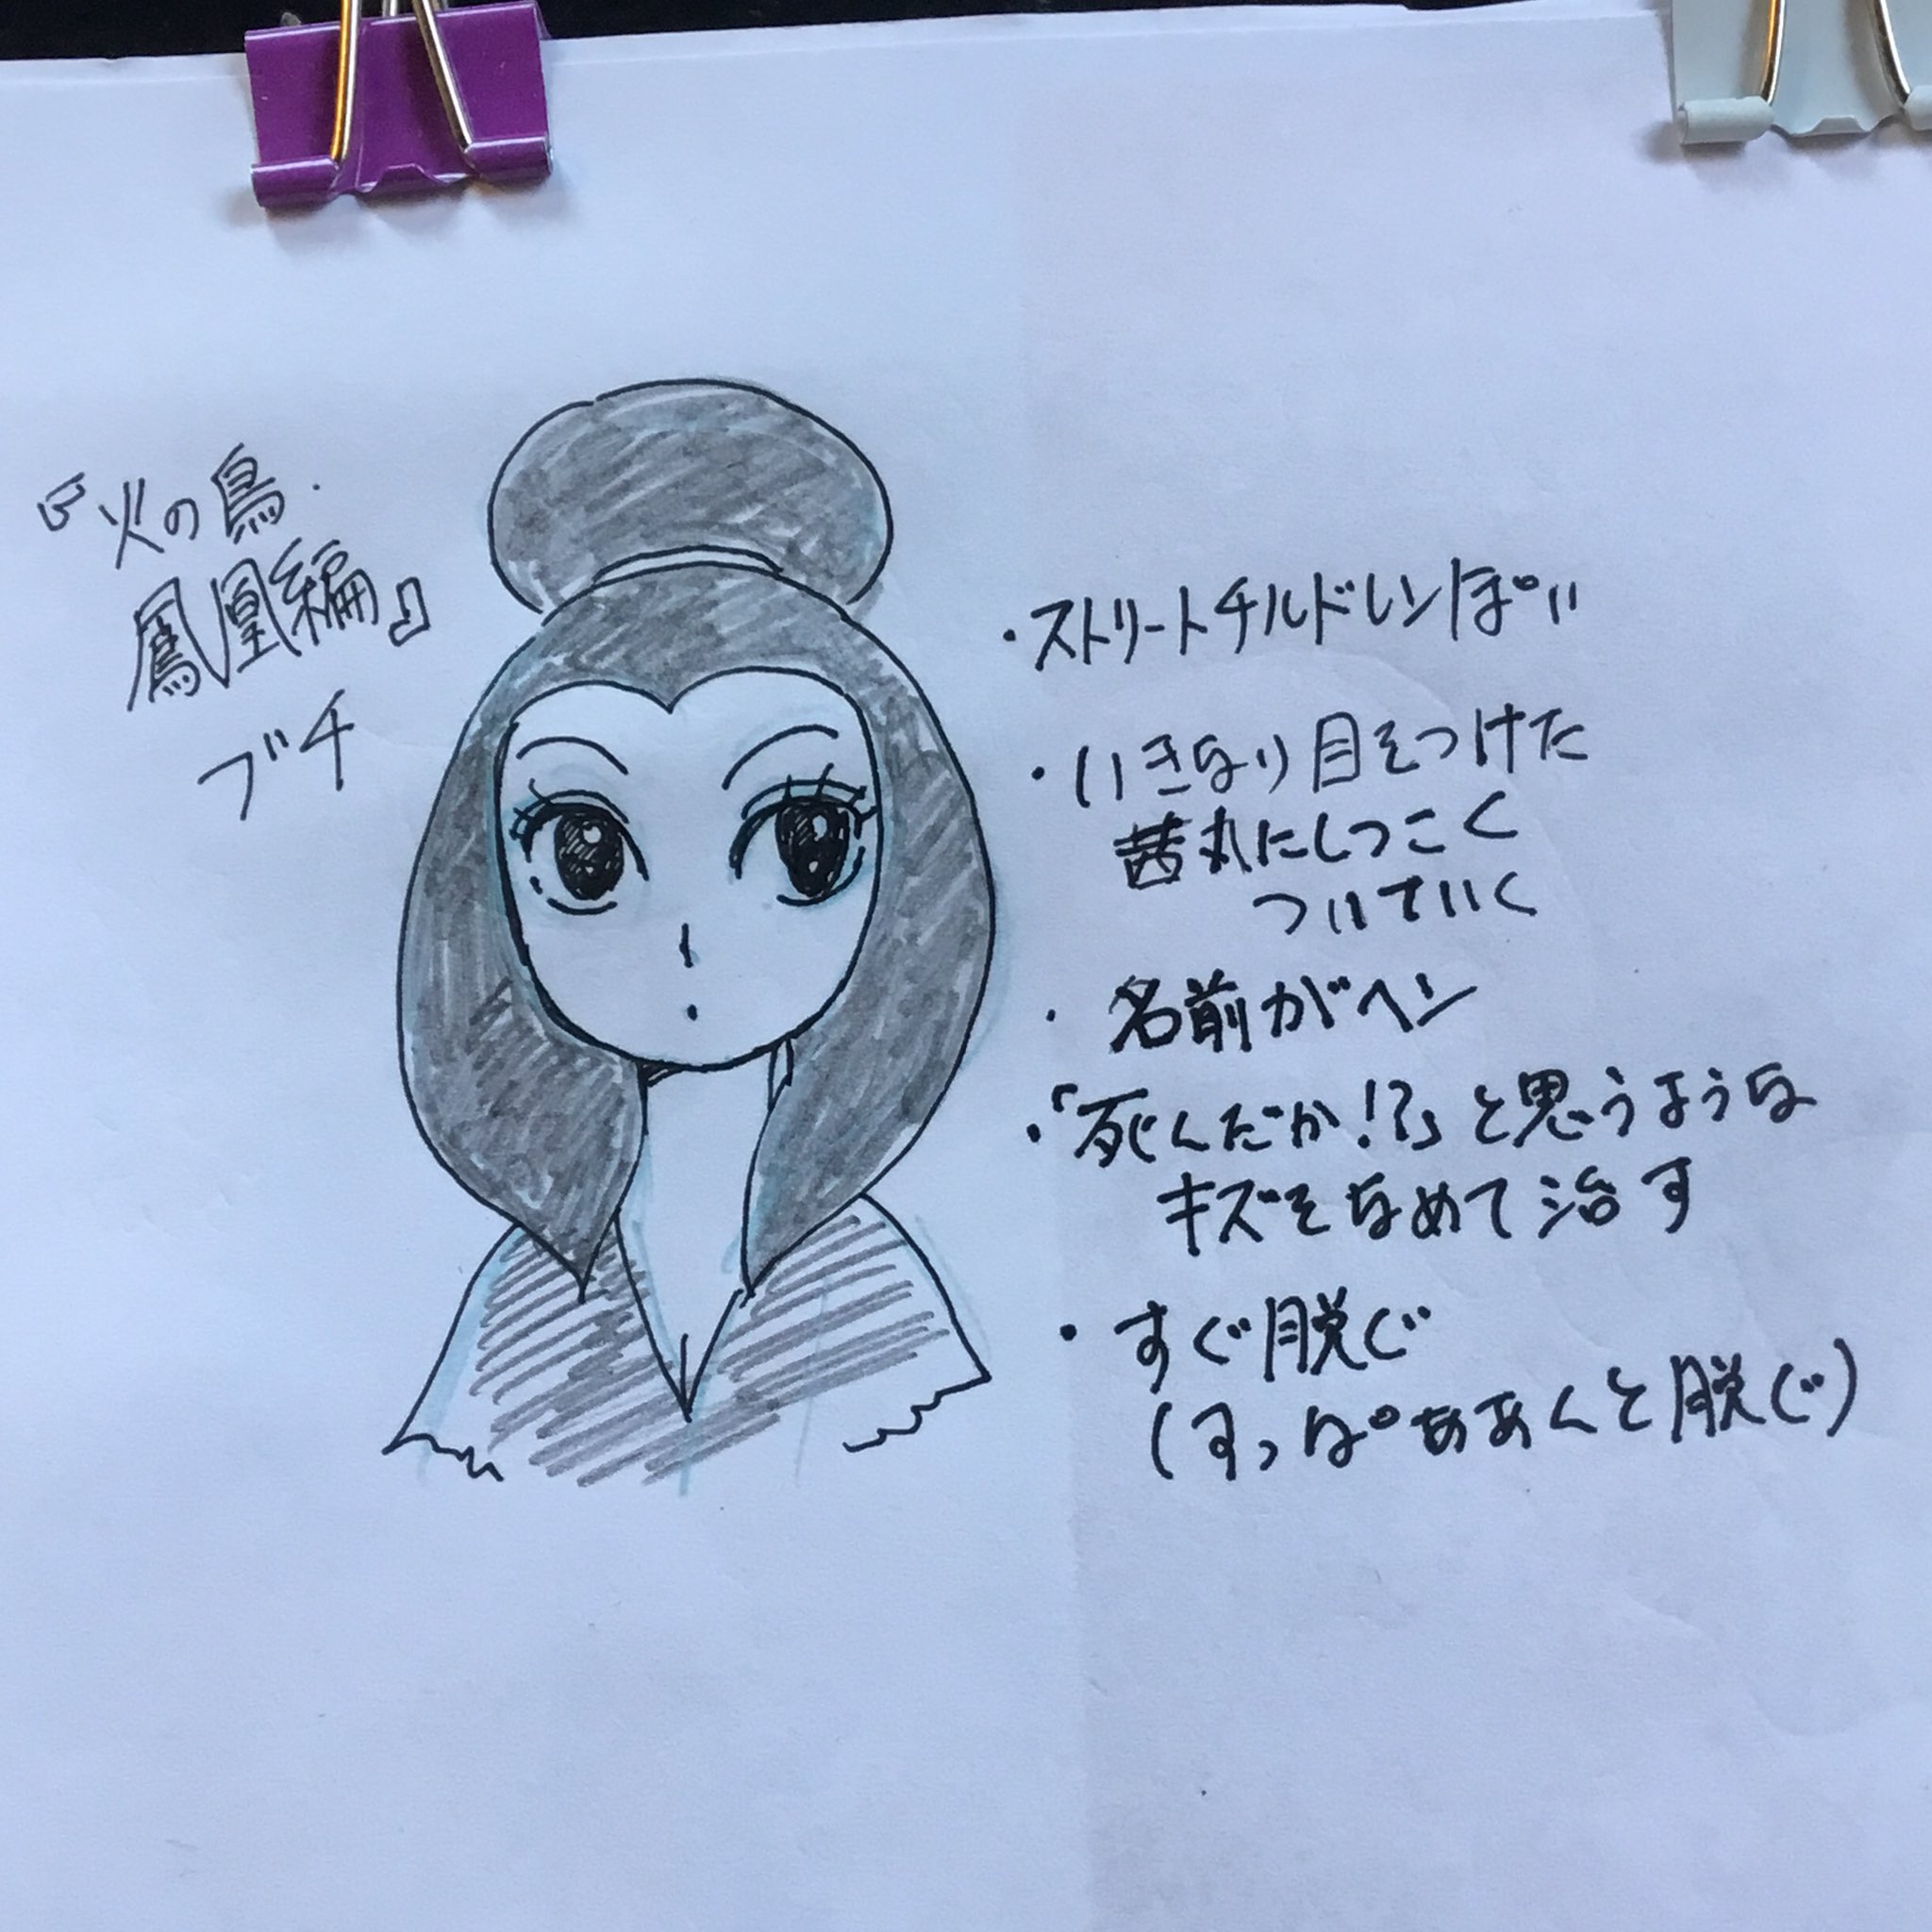 『火の鳥・
鳳凰編』
ブチ
・ストリートチルドレンぽい
・いきなり目をつけた
茜丸にしつこく
ついていく
・名前がヘン
・「死んだか!?」と思うような
キズをなめて治す
・すぐ脱ぐ
(すっぱああんと脱ぐ)